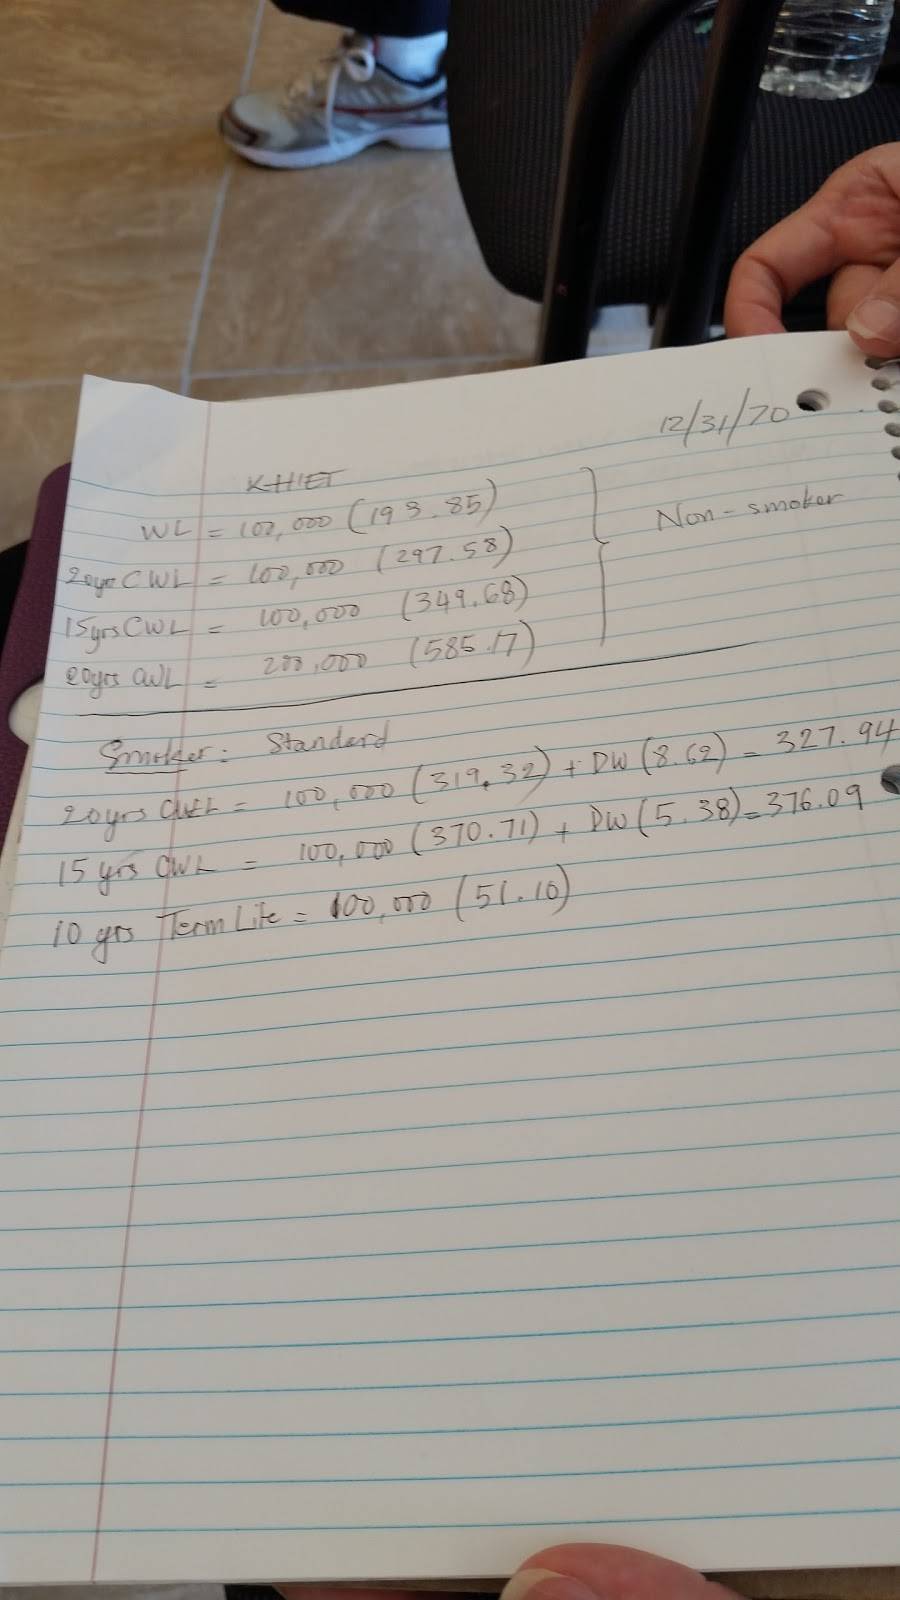 12/31/20
KHIET
WL = 100,000 (193.85)
Non-smoker
20yrs CWL = 100,000 (297.58)
15yrs CWL = 100,000 (349.68)
20yrs CWL = 200,000 (585.17)
Smoker: Standard
20yrs CWL = 100,000 (319.32) + DW (8.62) = 327.94
15 yrs CWL = 100,000 (370.71) + DW (5.38) = 376.09
10 yrs Term Life = 100,000 (51.10)